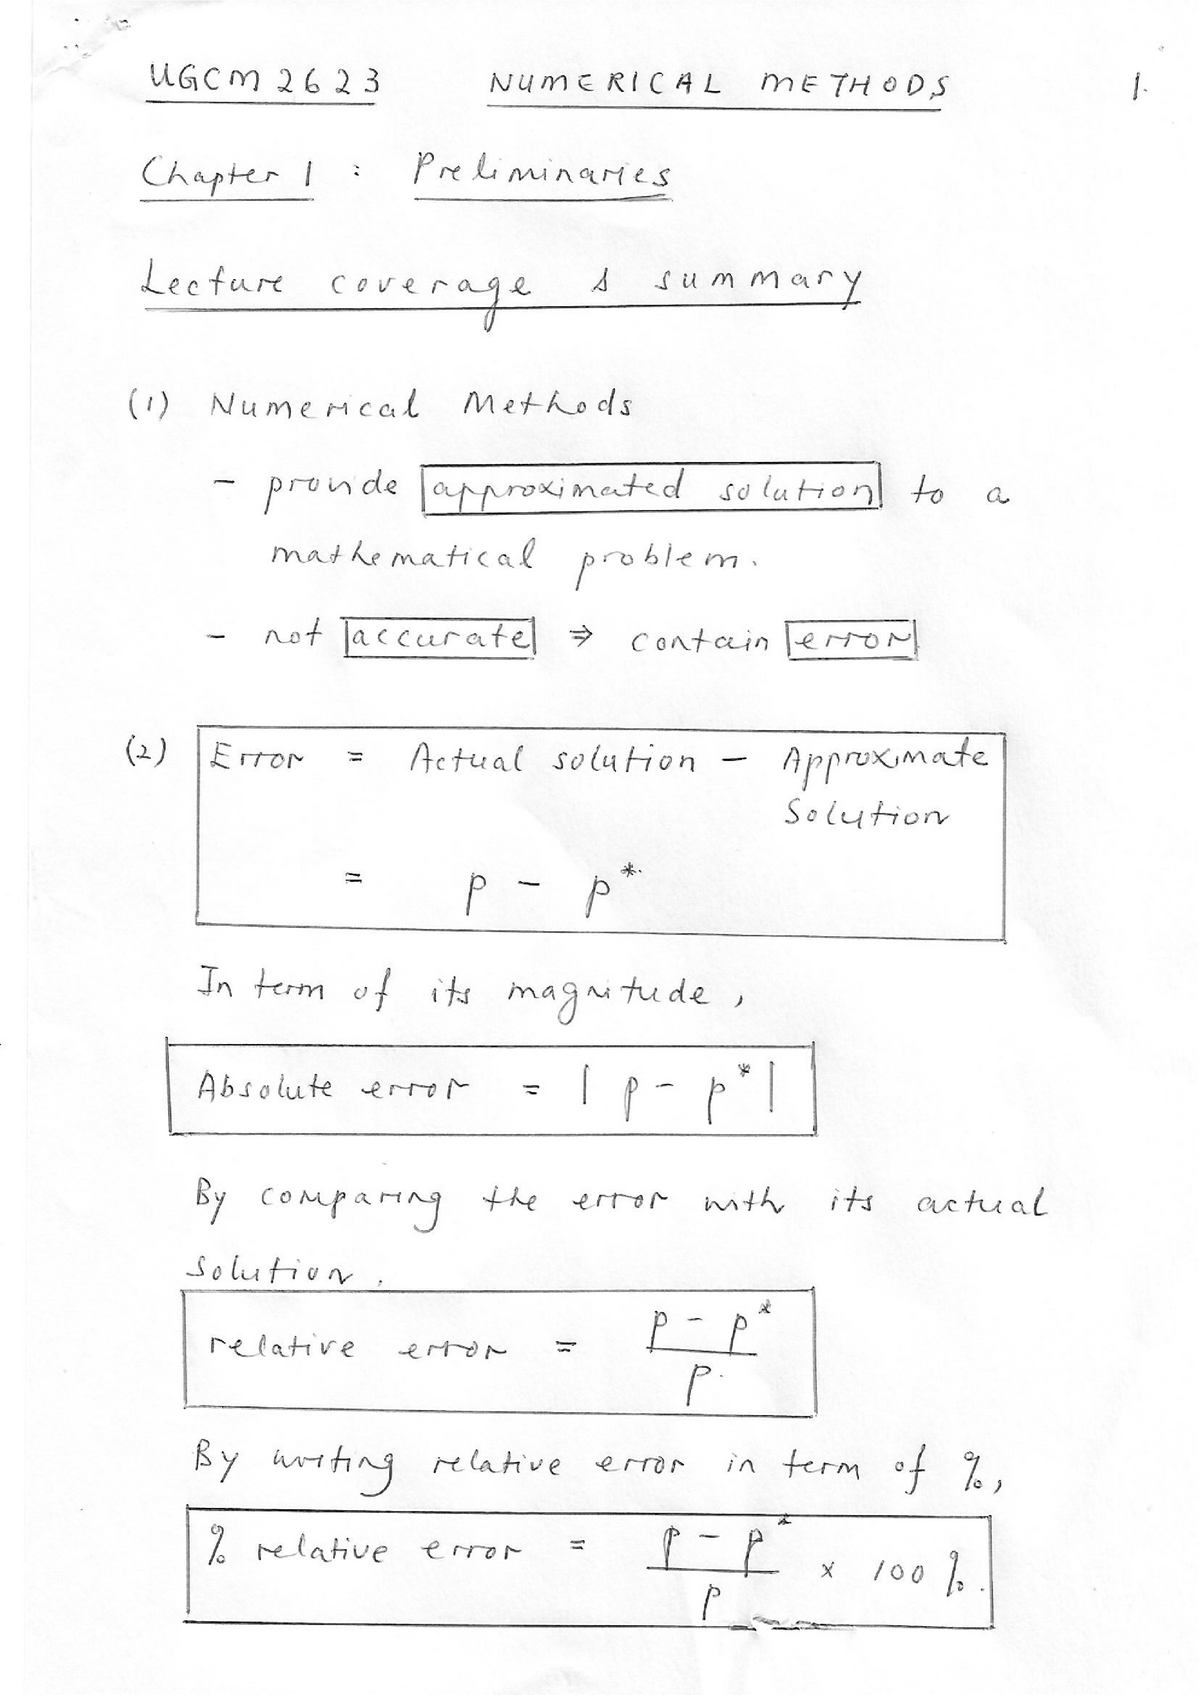 UGCM 2623 NUMERICAL METHODS 1.
Chapter 1 : Preliminaries
Lecture coverage & summary
(1) Numerical Methods
- provide approximated solution to a
mathematical problem.
- not accurate ⇒ contain error
(2) Error = Actual solution - Approximate
Solution
= p - p*
In term of its magnitude,
Absolute error = | p - p* |
By comparing the error with its actual
solution,
relative error = (p - p*) / p
By writing relative error in term of %,
% relative error = (p - p*) / p × 100 %.